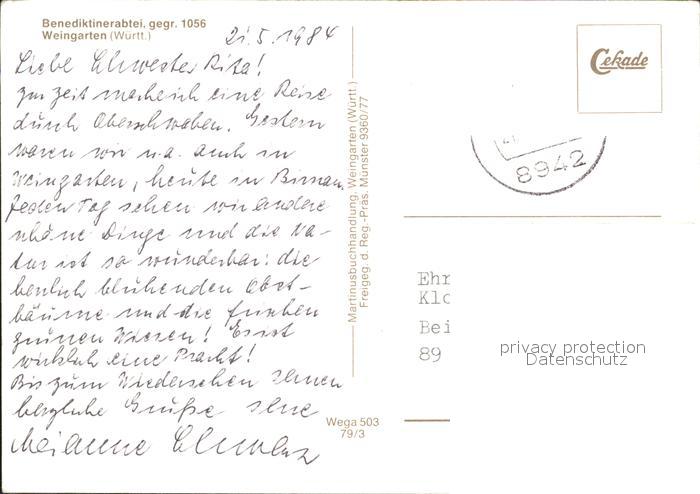 Benediktinerabtei, gegr. 1056
Weingarten (Württ.)
21.5.1984
Liebe Schwester Rita!
zur Zeit mache ich eine Reise
durch Oberschwaben. Gestern
waren wir u.a. auch in
Weingarten, heute in Birnau.
Jeden Tag sehen wir andere
schöne Dinge und die Na-
tur ist so wunderbar: die
herrlich blühenden Obst-
bäume und die frischen
grünen Wiesen! Es ist
wirklich eine Pracht!
Bis zum Wiedersehen
herzliche Grüße
Marianne
Martinusbuchhandlung, Weingarten (Württ.)
Freigeg. d. Reg.-Präs. Münster 9360/77
Wega 503
79/3
Cekade
8942
Ehr
Klo
Bei
89
privacy protection
Datenschutz